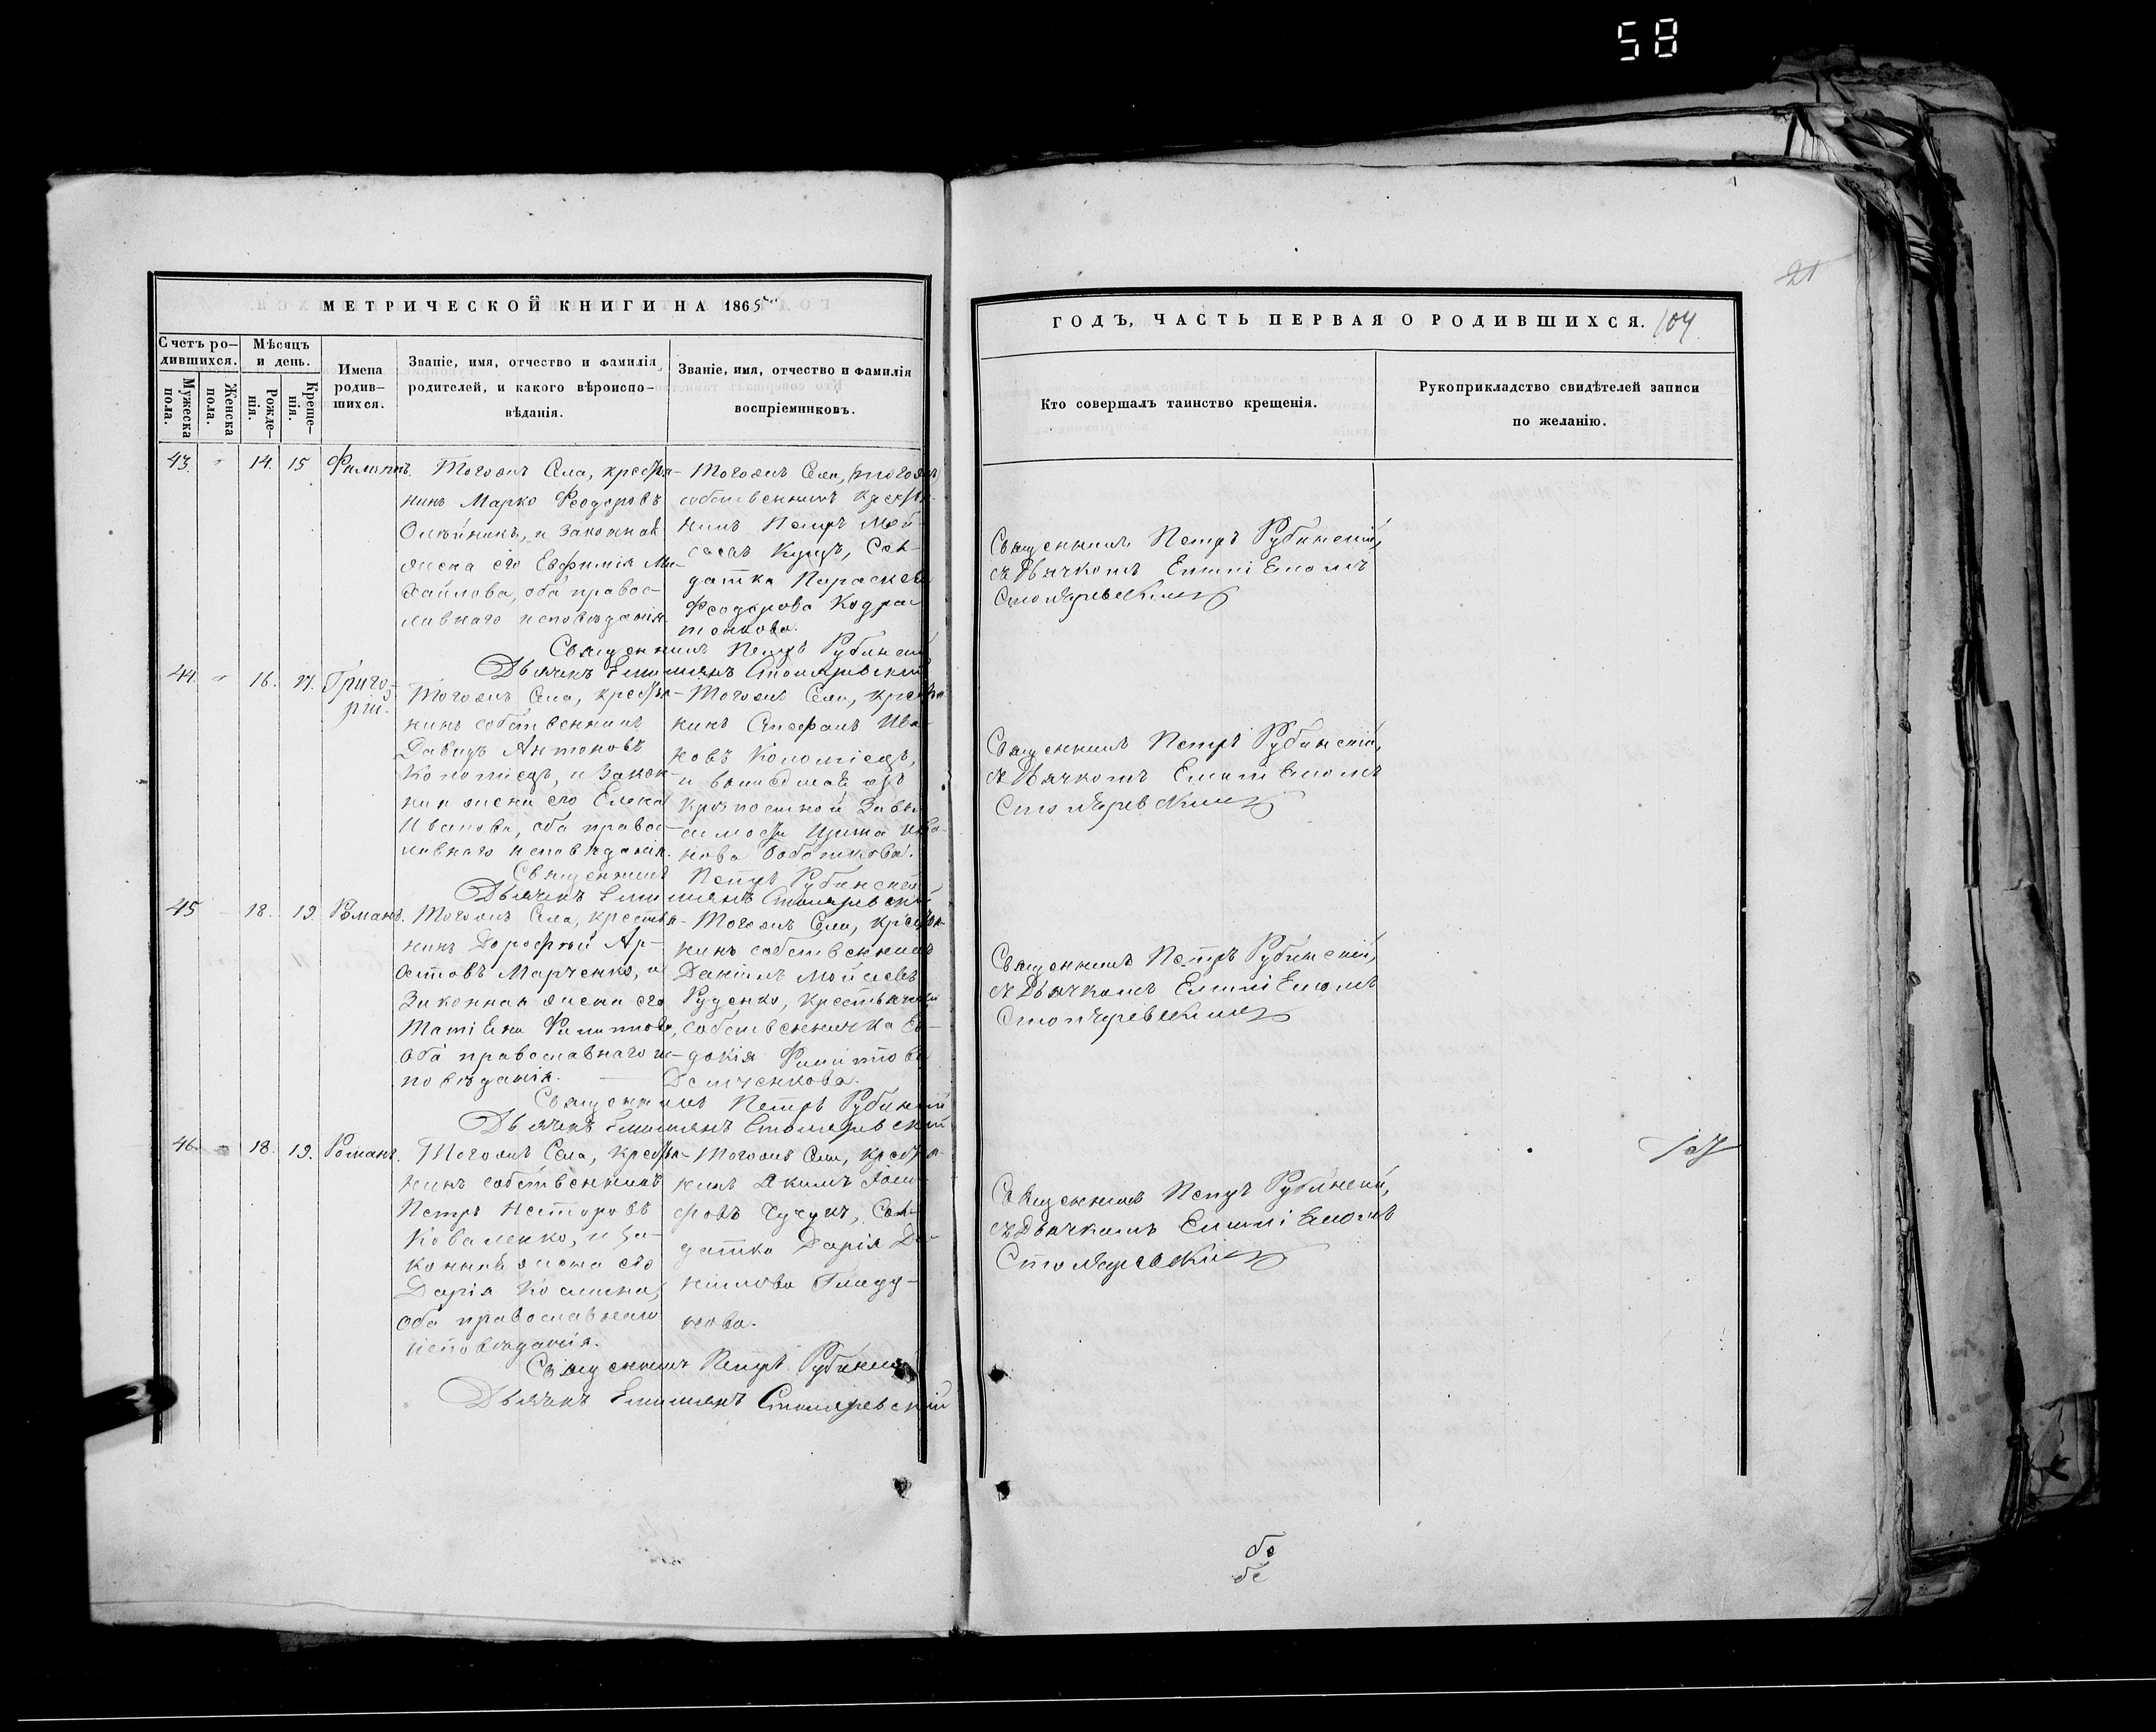 58
21
МЕТРИЧЕСКОЙ КНИГИ НА 1865
Счетъ ро-
дившихся.
Мужеска
пола.
Женска
пола.
Мѣсяцъ
и день.
Рожде-
нія.
Креще-
нія.
Имена
родив-
шихся.
Званіе, имя, отчество и фамилія
родителей, и какого вѣроиспо-
вѣданія.
Званіе, имя, отчество и фамилія
воспріемниковъ.
43. 14. 15 Филиппъ.
Тогожъ Села, крестья-
нинъ Марко Феодоровъ
Олѣйникъ, и законная
жена его Евфимія Ми-
хайлова, оба правос-
лавнаго исповѣданія.
Тогожъ Села,
собственникъ крестья-
нинъ Петръ Мой-
сеевъ Куцъ, Сол-
датка Параскева
Феодорова
Священникъ Петръ Рубинскій
Дьячекъ Емиліянъ Столяревскій
44. 16. 17. Григо-
рій.
Тогожъ Села, крестья-
нинъ собственникъ
Давидъ Антоновъ
Коломіецъ, и закон-
ная жена его Елена
Иванова, оба правос-
лавнаго исповѣданія.
Тогожъ Села, крестья-
нинъ Стефанъ Ива-
новъ Коломіецъ,
и вышедшая изъ
крѣпостной зави-
симости Ирина Ива-
нова
Священникъ Петръ Рубинскій
Дьячекъ Емиліянъ Столяревскій
45 18. 19. Романъ.
Тогожъ Села, крестья-
нинъ Дорофтей
Марченко, и
Законная жена его
Татіяна Филиппова,
Оба православнаго ис-
повѣданія.
Тогожъ Села, крестья-
нинъ собственникъ
Даніилъ Мойсеевъ
Руденко, крестьянка
собственничка Ев-
докія Филиппова
Демченкова.
Священникъ Петръ Рубинскій
Дьячекъ Емиліянъ Столяревскій
46. 18. 19. Романъ.
Тогожъ Села, крестья-
нинъ собственникъ
Петръ Несторовъ
Коваленко, и за-
конная жена его
Дарія Косьмина,
оба православнаго
исповѣданія.
Тогожъ Села, крестья-
нинъ Якимъ
Чучукъ, Сол-
датка Дарія Да-
ніилова Гладу-
нова.
Священникъ Петръ Рубинскій
Дьячекъ Емиліянъ Столяревскій
ГОДЪ, ЧАСТЬ ПЕРВАЯ О РОДИВШИХСЯ. 104
Кто совершалъ таинство крещенія.
Рукоприкладство свидѣтелей записи
по желанію.
Священникъ Петръ Рубинскій,
съ Дьячкомъ Емиліяномъ
Столяревскимъ
Священникъ Петръ Рубинскій,
съ Дьячкомъ Емиліяномъ
Столяревскимъ
Священникъ Петръ Рубинскій,
съ Дьячкомъ Емиліяномъ
Столяревскимъ
Священникъ Петръ Рубинскій,
съ Дьячкомъ Емиліяномъ
Столяревскимъ